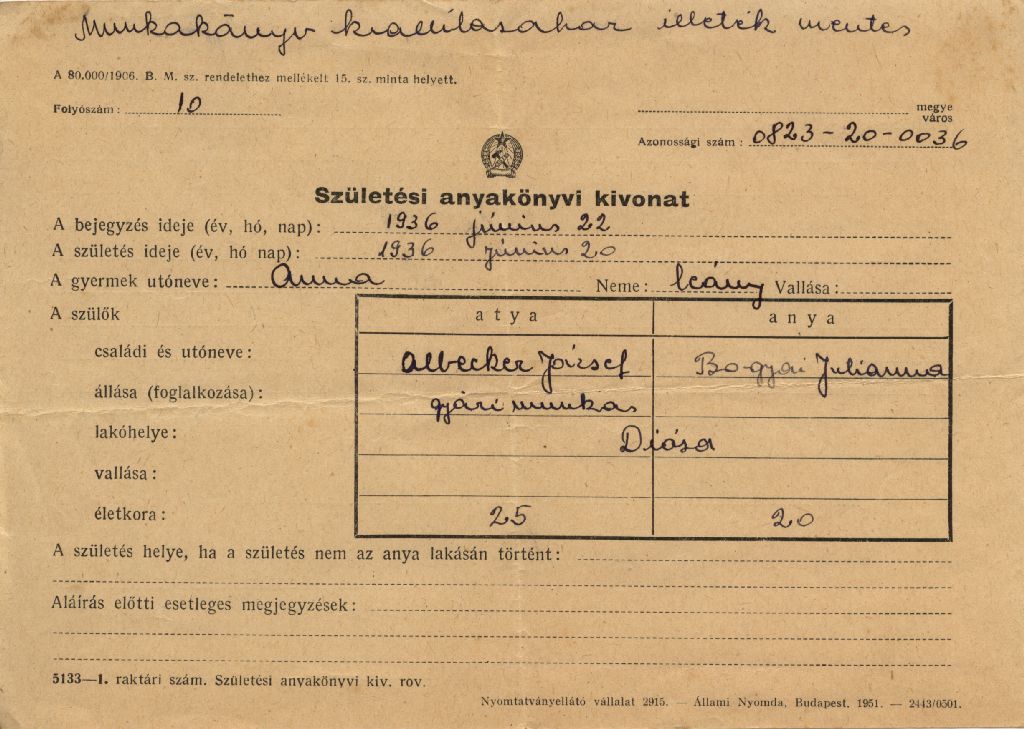 Munkakönyv kiállításához illeték mentes
A 80.000/1906. B. M. sz. rendelethez mellékelt 15. sz. minta helyett.
Folyószám: 10
megye
város
Azonossági szám: 0823-20-0036
Születési anyakönyvi kivonat
A bejegyzés ideje (év, hó, nap): 1936 június 22
A születés ideje (év, hó nap): 1936 június 20
A gyermek utóneve: Anna Neme: leány Vallása:
A szülők atya anya
családi és utóneve: Albecker József Bogyai Julianna
állása (foglalkozása): gyári munkás
lakóhelye: Diósd
vallása:
életkora: 25 20
A születés helye, ha a születés nem az anya lakásán történt:
Aláírás előtti esetleges megjegyzések:
5133—1. raktári szám. Születési anyakönyvi kiv. rov.
Nyomtatványellátó vállalat 2915. — Állami Nyomda, Budapest. 1951. — 2443/0501.